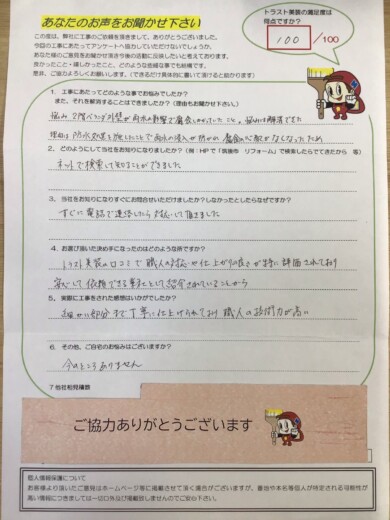 あなたのお声をお聞かせ下さい
トラスト美装の満足度は
何点ですか?
100 /100
この度は、弊社に工事のご依頼を頂きまして、ありがとうございました。
今回の工事にあたってアンケートへ協力していただけないでしょうか。
あなた様のご意見をお聞かせ頂き今後の活動に反映したいと考えております。
良かったこと・嬉しかったこと、どのような些細な事でも結構です。
是非、ご協力よろしくお願いします。(できるだけ具体的に書いて頂けると助かります)
1. 工事にあたってどのような事でお悩みでしたか?
また、それを解消することはできましたか?(理由もお聞かせ下さい。)
悩み 2階ベランダ外壁が雨水の影響で腐食しかけていたこと。悩みは解消できた
理由は防水処理を施したことで雨水の浸入が防がれ 腐食の心配がなくなったため
2. どのようにして当社をお知りになりましたか?(例:HPで「筑後市 リフォーム」で検索したらでてきたから 等)
ネットで検索して知ることができました
3. 当社をお知りになりすぐにお問合せいただけましたか?しなかったとしたらなぜですか?
すぐに電話で連絡したら対応して頂きました
4. お選び頂いた決め手になったのはどのような所ですか?
トラスト美装の口コミで職人の対応や仕上がりの良さが特に評価されており
安心して依頼できる業者として紹介されていることから
5. 実際に工事をされた感想はいかがでしたか?
細かい部分まで丁寧に仕上げられており 職人の技術力が高い
6. その他、ご自宅のお悩みはございますか?
今のところありません
7 他社相見積数
ご協力ありがとうございます
個人情報保護について
お客様より頂いたご意見はホームページ等に掲載させて頂く場合がございますが、番地や本名等個人が特定される可能性が
高い情報につきましては一切口外及び掲載致しませんのでご安心下さい。